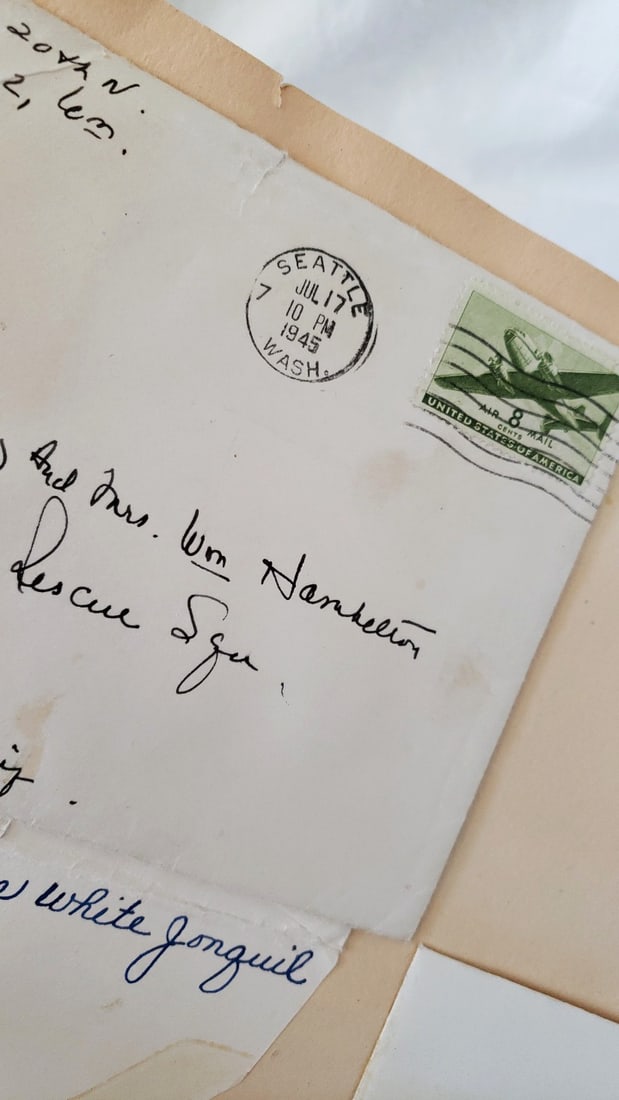 20th N.
2,
SEATTLE
7
JUL 17
10 PM
1945
WASH.
AIR 8 MAIL
CENTS
UNITED STATES OF AMERICA
And Mrs. Wm Hambelton
Rescue Squ.
White Jonquil